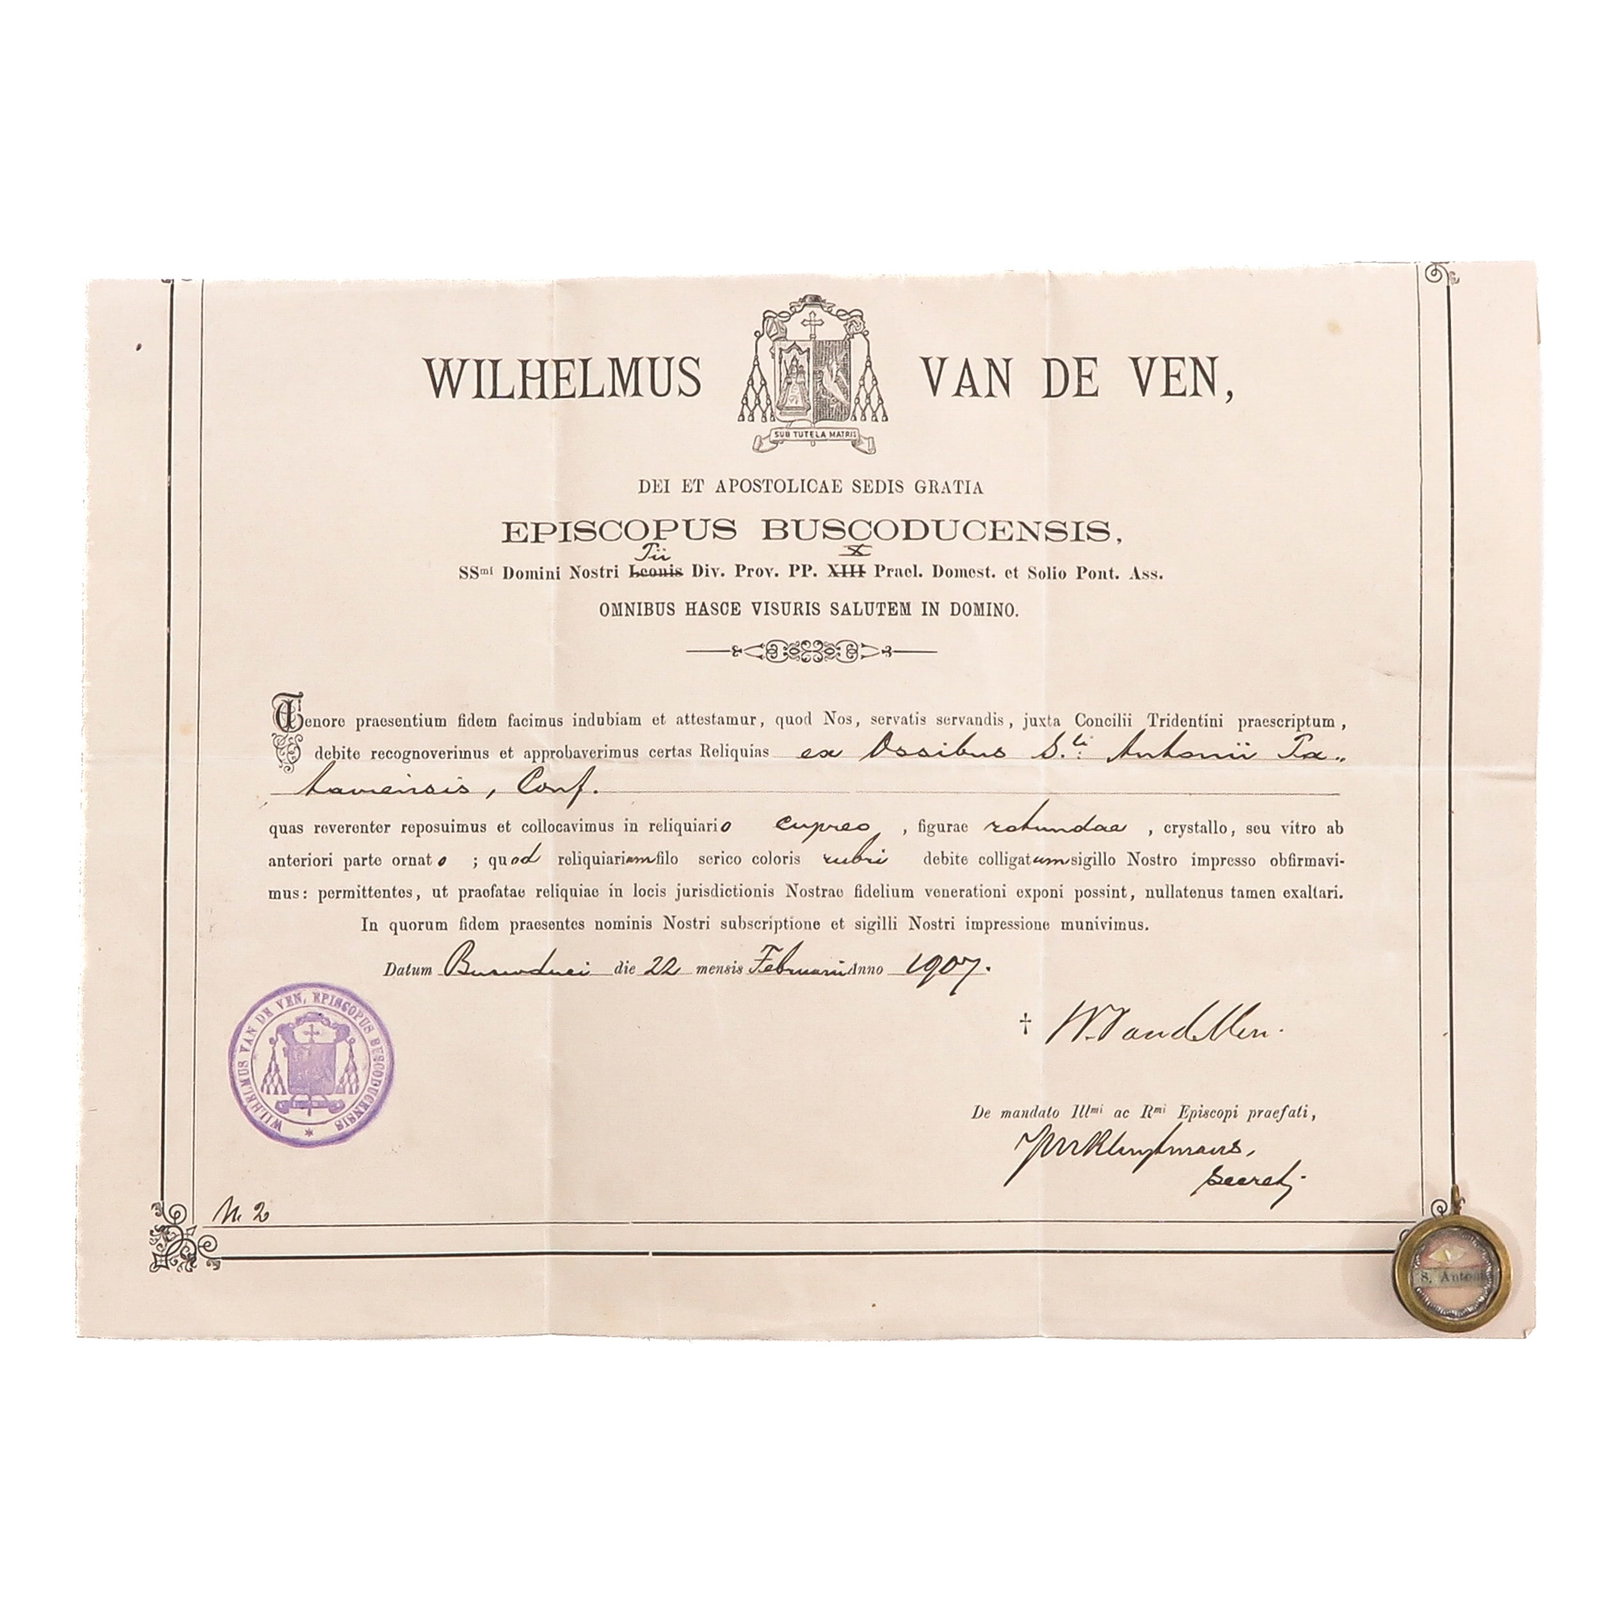 WILHELMUS VAN DE VEN,
SUB TUTELA MATRIS
DEI ET APOSTOLICAE SEDIS GRATIA
EPISCOPUS BUSCODUCENSIS,
Pii X
SSmi Domini Nostri Leonis Div. Prov. PP. XIII Prael. Domest. et Solio Pont. Ass.
OMNIBUS HASCE VISURIS SALUTEM IN DOMINO.
Tenore praesentium fidem facimus indubiam et attestamur, quod Nos, servatis servandis, juxta Concilii Tridentini praescriptum,
debite recognoverimus et approbaverimus certas Reliquias ex Ossibus S.ti Antonii Pa„
taviensis, Conf.
quas reverenter reposuimus et collocavimus in reliquiario cupreo, figurae rotundae, crystallo, seu vitro ab
anteriori parte ornato; quod reliquiariam filo serico coloris rubri debite colligatum sigillo Nostro impresso obfirmavi-
mus: permittentes, ut praefatae reliquiae in locis jurisdictionis Nostrae fidelium venerationi exponi possint, nullatenus tamen exaltari.
In quorum fidem praesentes nominis Nostri subscriptione et sigilli Nostri impressione munivimus.
Datum Buscoduci die 22 mensis Februarii Anno 1907.
WILHELMUS VAN DE VEN, EPISCOPUS BUSCODUCENSIS *
† W. Vande Ven.
De mandato Illmi ac Rmi Episcopi praefati,
Secret;
N. 2
S. Anton